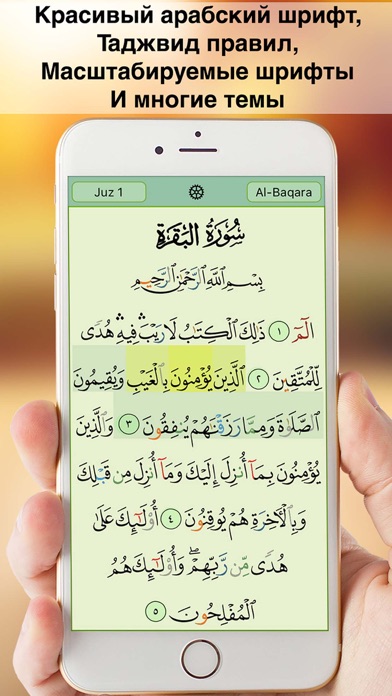 Красивый арабский шрифт,
Таджвид правил,
Масштабируемые шрифты
И многие темы
Juz 1
Al-Baqara
سُورَةُ الْبَقَرَةِ
بِسْمِ اللَّهِ الرَّحْمَٰنِ الرَّحِيمِ
الٓمٓ ١ ذَٰلِكَ الْكِتَٰبُ لَا رَيْبَ ۛ فِيهِ ۛ هُدًى
لِّلْمُتَّقِينَ ٢ الَّذِينَ يُؤْمِنُونَ بِالْغَيْبِ وَيُقِيمُونَ
الصَّلَوٰةَ وَمِمَّا رَزَقْنَٰهُمْ يُنفِقُونَ ٣ وَالَّذِينَ
يُؤْمِنُونَ بِمَآ أُنزِلَ إِلَيْكَ وَمَآ أُنزِلَ مِن قَبْلِكَ
وَبِالْآخِرَةِ هُمْ يُوقِنُونَ ٤ أُو۟لَٰٓئِكَ عَلَىٰ
هُدًى مِّن رَّبِّهِمْ ۖ وَأُو۟لَٰٓئِكَ هُمُ
الْمُفْلِحُونَ ٥